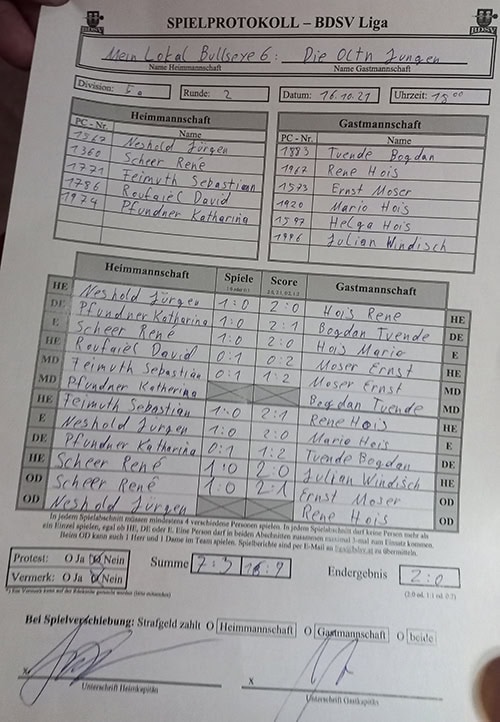 SPIELPROTOKOLL – BDSV Liga
BDSV
BDSV
Mein Lokal Bullseye 6 : Die Oltn Jungen
Name Heimmannschaft Name Gastmannschaft
Division: Runde: 2 Datum: 16.10.21 Uhrzeit: 15 00
Heimmannschaft Gastmannschaft
PC - Nr. Name PC - Nr. Name
1567 Neshold Jürgen 1883 Tuende Bogdan
1360 Scheer René 1967 Rene Hois
1771 Feimuth Sebastian 1573 Ernst Moser
1786 Roufaiel David 1920 Mario Hois
1974 Pfundner Katharina 1597 Helga Hois
1996 Julian Windisch
Heimmannschaft Spiele Score Gastmannschaft
HE Neshold Jürgen 1:0 2:0 Hois Rene HE
DE Pfundner Katharina 1:0 2:1 Bogdan Tuende DE
E Scheer René 1:0 2:0 Hois Mario E
HE Roufaiel David 0:1 0:2 Moser Ernst HE
MD Feimuth Sebastian 0:1 1:2 Moser Ernst MD
MD Pfundner Katharina Bogdan Tuende MD
HE Feimuth Sebastian 1:0 2:1 Rene Hois HE
E Neshold Jürgen 1:0 2:0 Mario Hois E
DE Pfundner Katharina 0:1 1:2 Tuende Bogdan DE
HE Scheer René 1:0 2:0 Julian Windisch HE
OD Scheer René 1:0 2:1 Ernst Moser OD
OD Neshold Jürgen Rene Hois OD
In jedem Spielabschnitt müssen mindestens 4 verschiedene Personen spielen. In jedem Spielabschnitt darf keine Person mehr als
ein Einzel spielen, egal ob HE, DE oder E. Eine Person darf in beiden Abschnitten zusammen maximal 3-mal zum Einsatz kommen.
Beim OD kann auch 1 Herr und 1 Dame im Team spielen. Spielberichte sind per E-Mail an zu übermitteln.
Protest: O Ja O Nein Summe 7:3 16:9 Endergebnis 2:0
Vermerk: O Ja O Nein
(2:0 od. 1:1 od. 0:2)
Bei Spielverschiebung: Strafgeld zahlt O Heimmannschaft O Gastmannschaft O beide
x x
Unterschrift Heimkapitän Unterschrift Gastkapitän